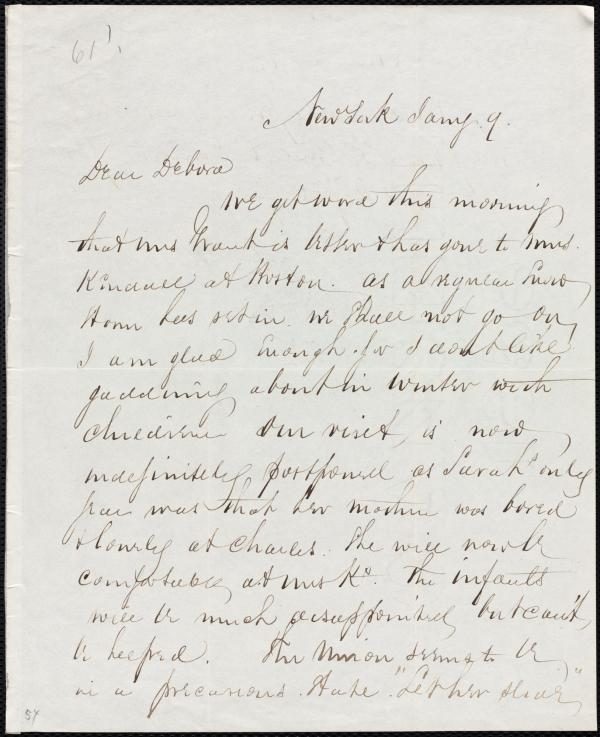 61?
New York Jany. 9.
Dear Debora
We got word this morning
that Mrs Grant is better & has gone to Mrs.
Kindall at Boston. as a regular Snow
Storm has set in. we Shall not go on,
I am glad Enough. for I don't like
gadding about in winter with
children Our visit, is now
indefinitely postponed as Sarah's only
fear was that her mother was bored
& lonely at Charles. She will now be
comfortable at Mrs Ks. The infants
will be much disappointed but can't,
be helped. The Union seems to be
in a precarious State. "Let her slide"
54